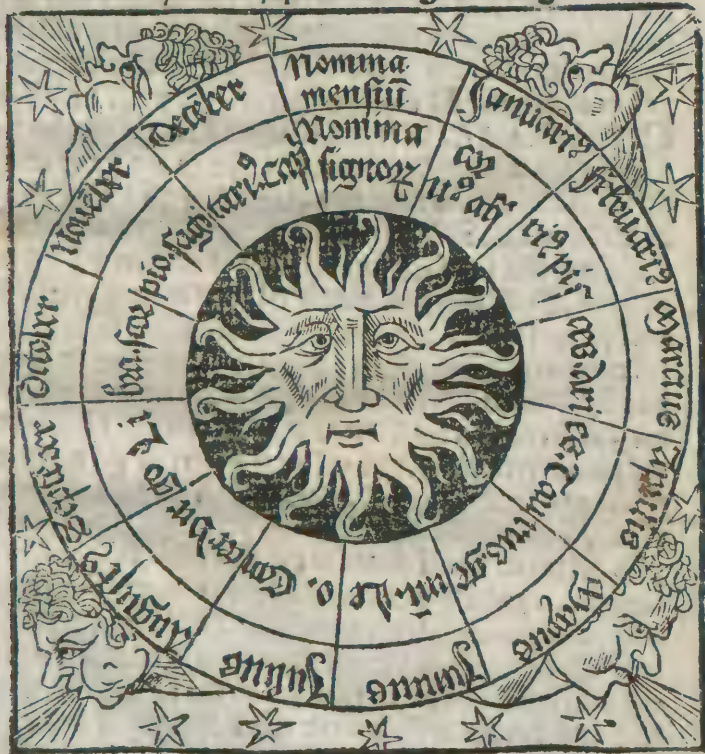 Nomina
mensiū
Januariꝰ
Februariꝰ
Marcius
Aprilis
Mayus
Junius
Julius
Augustꝰ
October
Nouēber
Decēber
Nomina
signoꝝ
cor
nꝰ aq̄
riꝰ. pis
ces. Aries
Taurus. Ge
mi. Le
o. Cancer. Vir
go Li
bra. scor
pio. sagitariꝰ. Cap